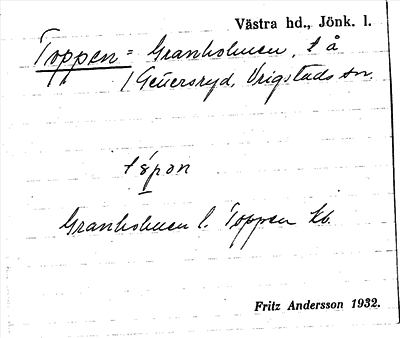 Västra hd., Jönk. l.
Toppen = Granholmen, t å
/ Geüersryd, Vrigstads sn.
t s̀pon
Granholmen l. Toppen kb.
Fritz Andersson 1932.